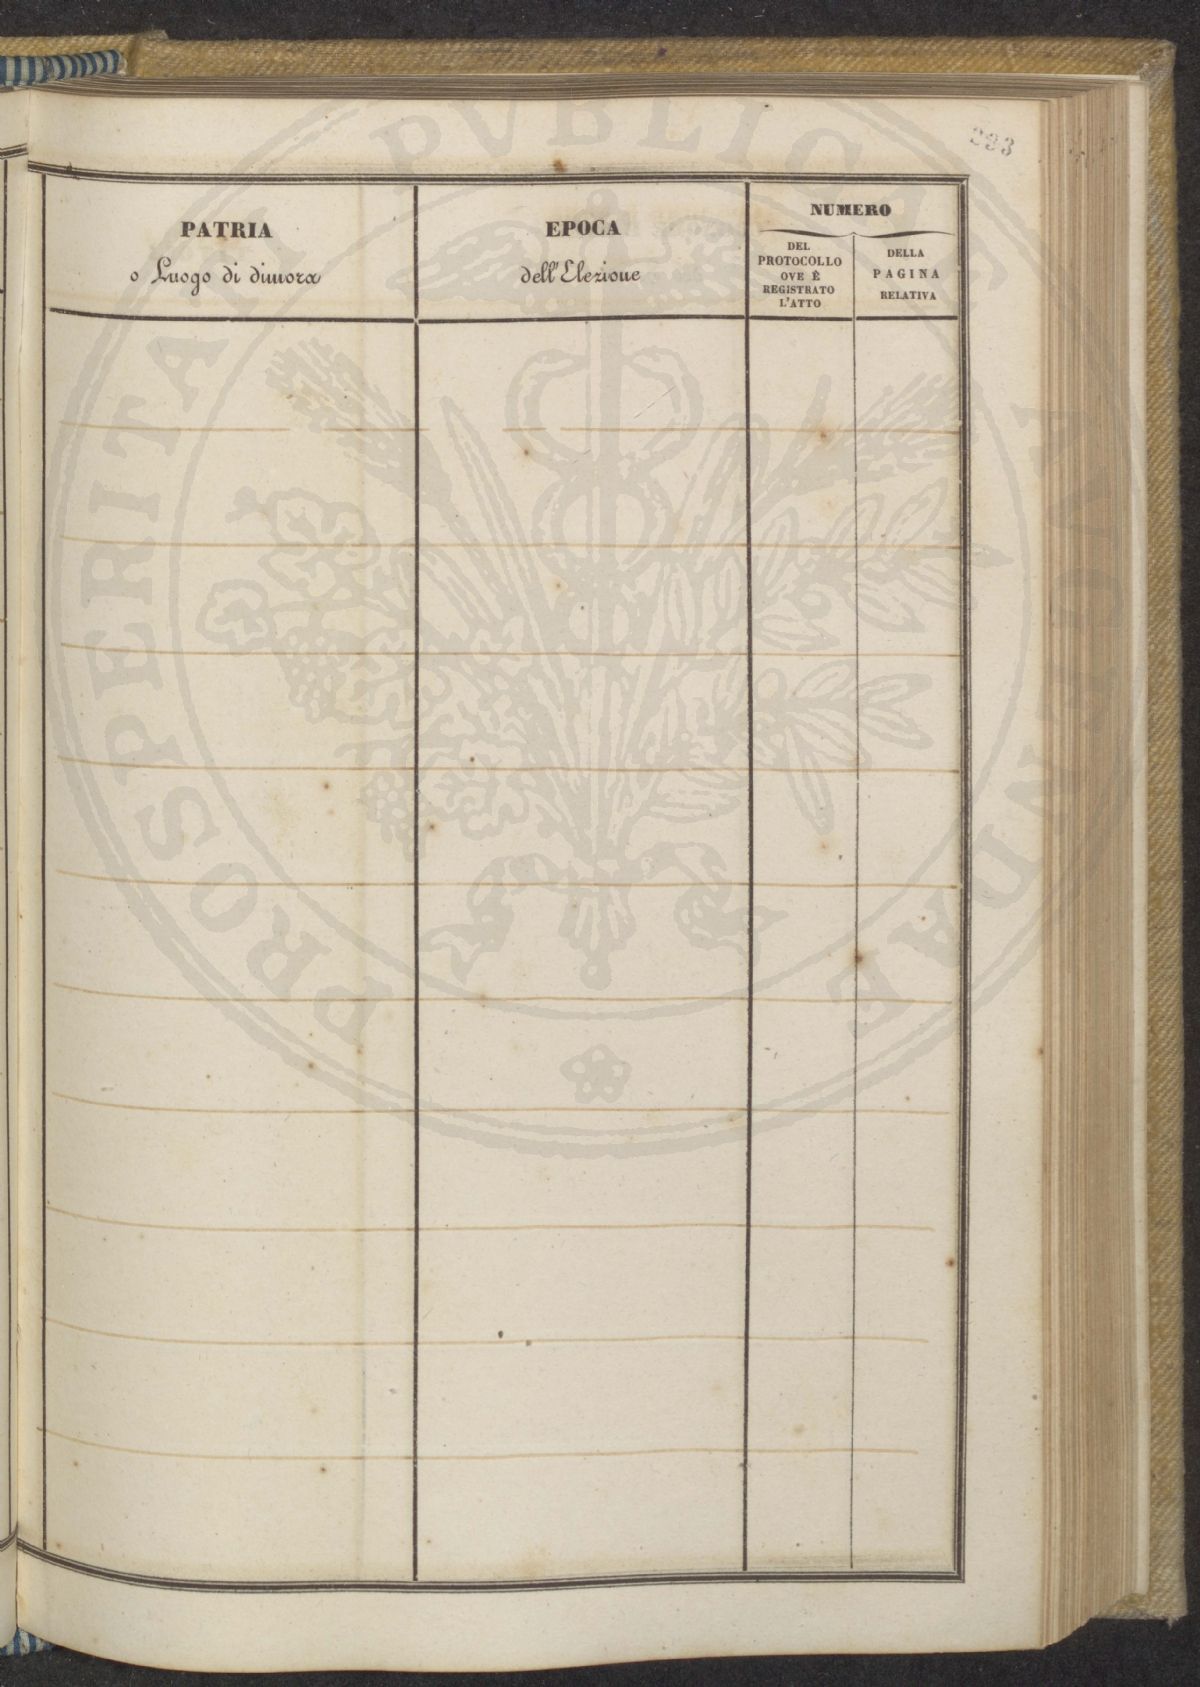 293
PATRIA
o Luogo di dimora
EPOCA
dell'Elezione
NUMERO
DEL
PROTOCOLLO
OVE È
REGISTRATO
L'ATTO
DELLA
PAGINA
RELATIVA
PROSPERITATI PVBLICAE AVGENDAE